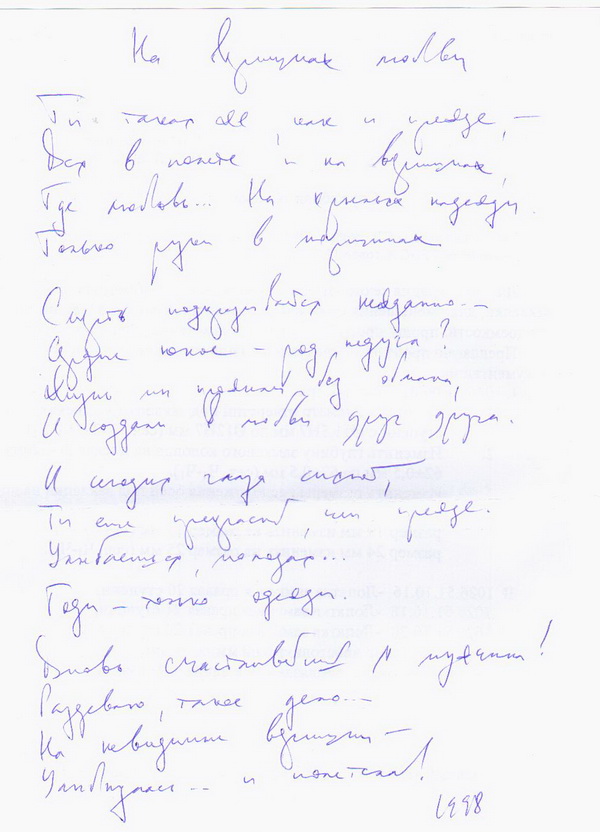 На вершинах любви
Ты такая же, как и прежде, —
Вся в полёте и на вершинах,
Где любовь... На крыльях надежды.
Только руки в морщинах
Смерть подкрадывается нежданно —
Сердце юное — род недуга?
Жизнь мы прожили без обмана,
И создали в любви друг друга.
И сегодня, глаза
Ты ещё прекрасней, чем прежде.
Улыбаешься, молодая...
Годы — только одежды.
Вновь счастливейший я мужчина!
Раздеваю, такое дело...
На невидимые вершины —
Улыбнулась... и полетела!
1998